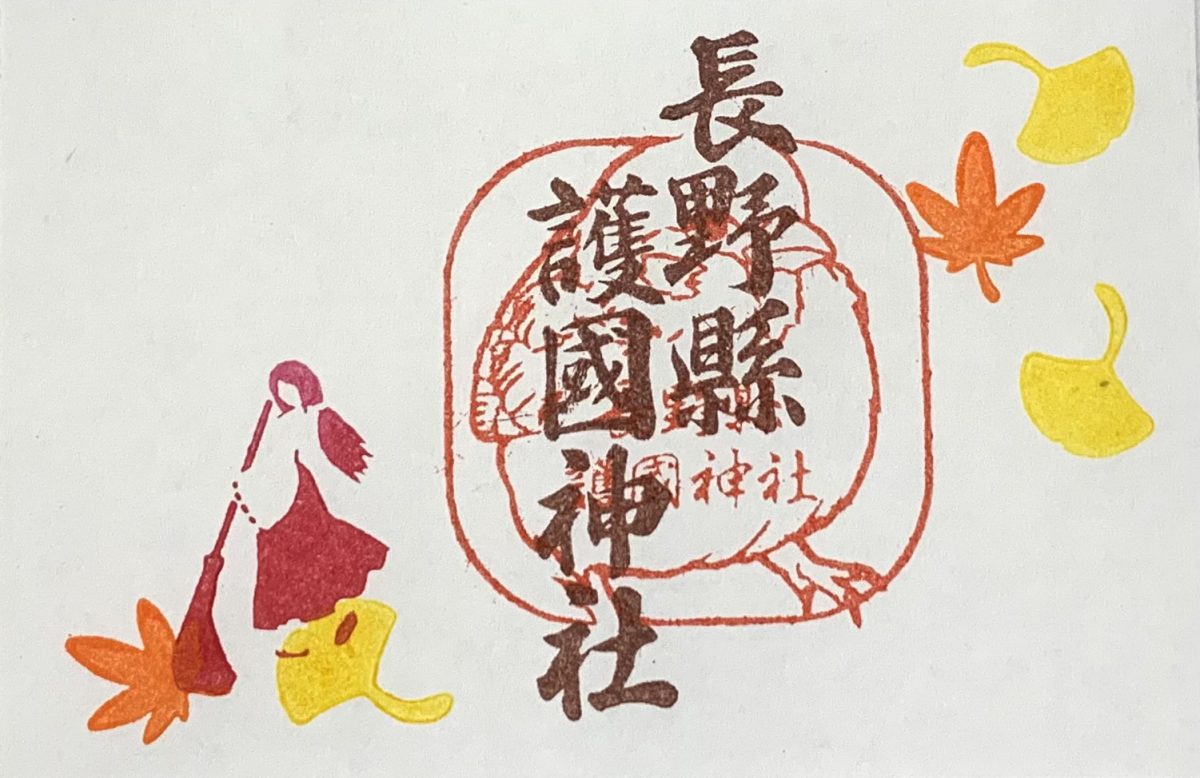 長野縣
護國神社
護國神社